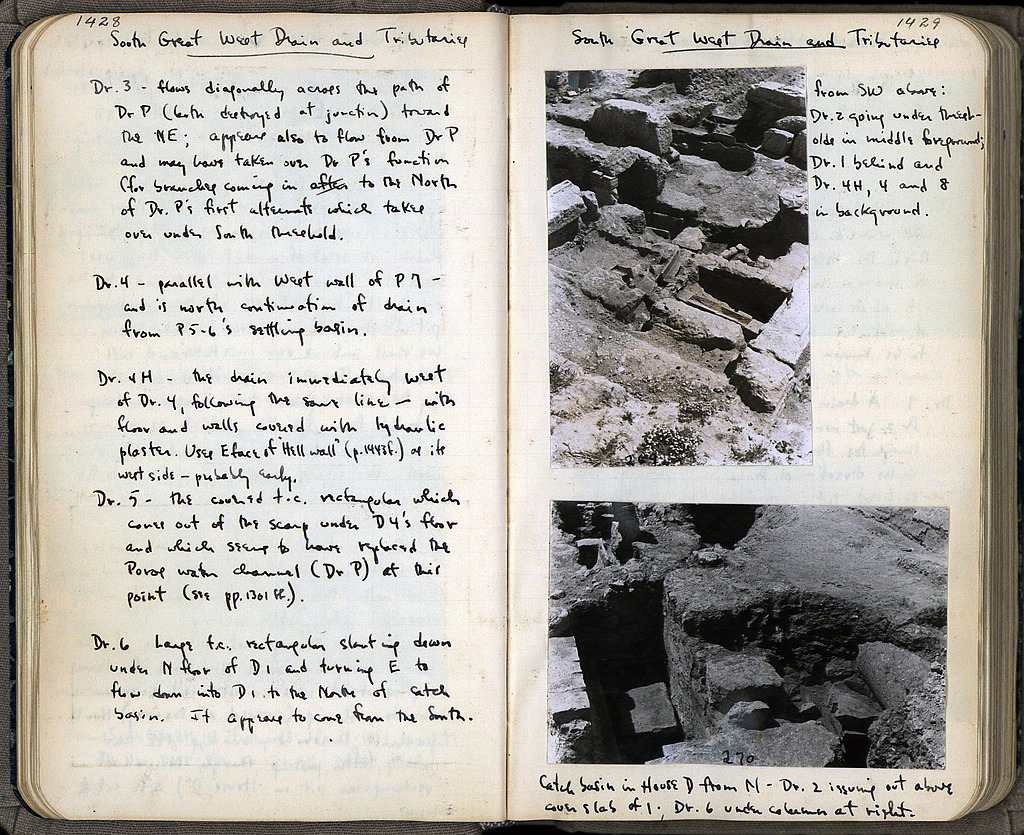 1428
South Great West Drain and Tributaries
Dr. 3 - flows diagonally across the path of
Dr P (both destroyed at junction) toward
the NE; appears also to flow from Dr P
and may have taken over Dr P's function
(for branches coming in after to the North
of Dr. P's first alternate which takes
over under South threshold.
Dr. 4 - parallel with West wall of P 7 -
and is north continuation of drain
from P5-6's settling basin.
Dr. 4H - the drain immediately west
of Dr. 4, following the same line - with
floor and walls covered with hydraulic
plaster. Uses E face of "Hell wall" (p. 1443f.) as its
west side - probably early.
Dr. 5 - the covered t.c. rectangular which
comes out of the scarp under D4's floor
and which seems to have replaced the
Poros water channel (Dr P) at this
point (see pp. 1301 ff.).
Dr. 6 Large t.c. rectangular slanting down
under N floor of D1 and turning E to
flow down into D1 to the North of catch
basin. It appears to come from the South.
1429
South Great West Drain and Tributaries
from SW above:
Dr. 2 going under thresh-
olds in middle foreground;
Dr. 1 behind and
Dr. 4H, 4 and 8
in background.
270
Catch basin in House D from N - Dr. 2 issuing out above
cover slab of 1; Dr. 6 under column at right.